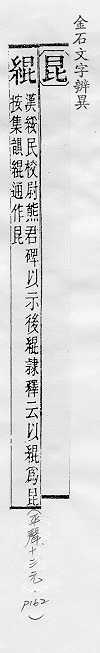 金石文字辨異
昆
緄 漢綏民校尉熊君碑以示後緄隸釋云以緄爲昆
按集韻緄通作昆
(平聲.十三元.
P162)